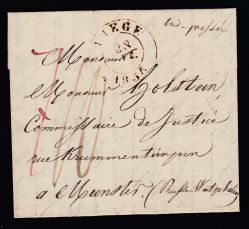 LIEGE
28
1835
très-pressée
Monsieur
Monsieur Holstein,
Commissaire de Justice
rue Krummentimpen
à Munster.